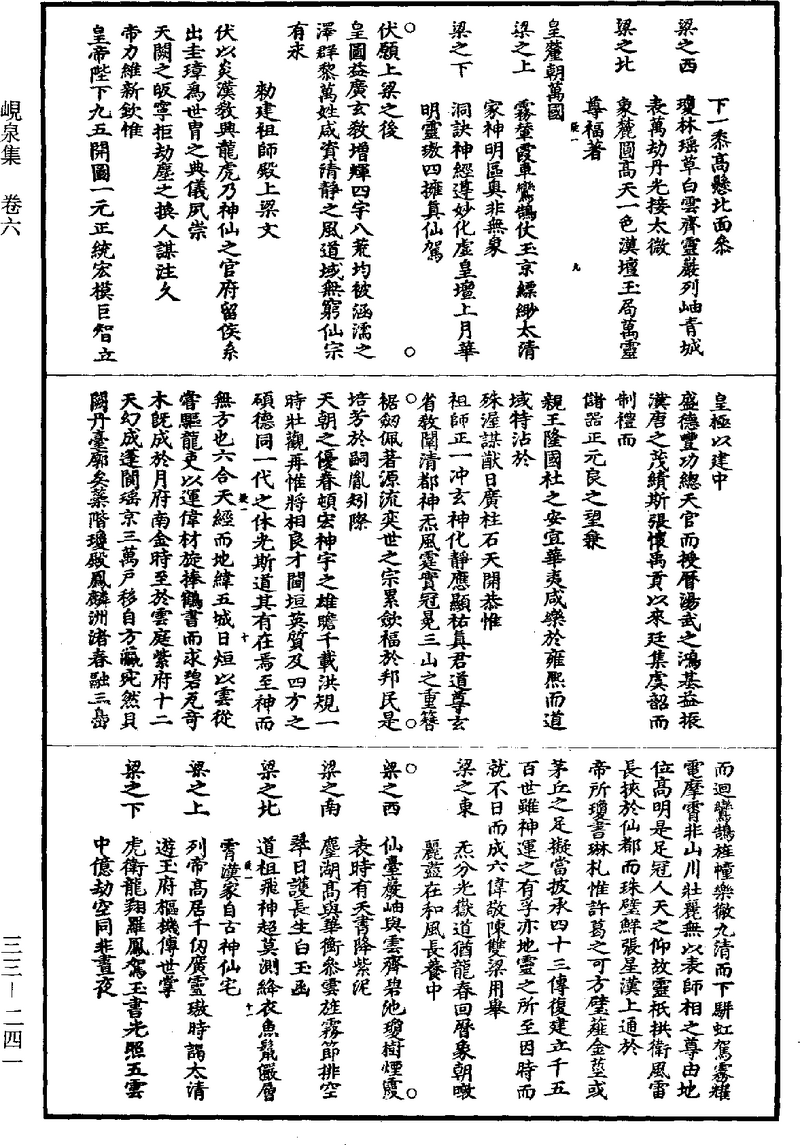 下一黍高懸北面參
梁之西　瓊林瑶草白雲齊靈巖列岫青城
表萬劫丹光接太微
梁之北　象麓圓高天一色漢壇玉局萬靈
尊福著
皇釐朝萬國
梁之上　霧輦霞車鸞鵠仗玉京縹緲太清
家神明區奥非無象
梁之下　洞訣神經遵妙化虚皇壇上月華
明靈璈四擁真仙駕
伏願上梁之後
皇圖益廣玄教增輝四字八荒均被涵濡之
澤群黎萬姓咸資清静之風道域無窮仙宗
有永
勑建祖師殿上梁文
伏以炎漢敎興龍虎乃神仙之官府留侯系
出圭璋爲世胄之典儀夙崇
天闕之皈寧拒劫塵之換人謀注久
帝力維新欽惟
皇帝陛下九五開圖一元正統宏模巨智立
皇極以建中
盛德豐功總天官而授曆湯武之鴻基益振
漢唐之茂績斯張懷禹貢以來廷集虞韶而
制禮而
儲器正元良之望兼
親王隆國社之安宜華夷咸樂於雍熙而道
域特沾於
殊渥謀猷日廣柱石天開恭惟
祖師正一冲玄神化静應顯祐真君道尊玄
省敎闡清都神炁風霆實冠晃三山之重簪
裾劒佩著源流奕世之宗累歛福於邦民是
培芳於嗣胤矧際
天朝之優眷頓宏神宇之雄瞻千載洪規一
時壯觀再惟將相良才閫垣英質及四方之
碩德同一代之休光斯道其有在焉至神而
無方也六合天經而地緯五城日烜以雲從
嘗驅龍吏以運偉材旋捧鶴書而求碧瓦奇
木旣成於月府南金時至於雲庭紫府十二
天幻成蓬閬瑶京三萬户移自方瀛宛然貝
闕丹臺廓矣蘂階瓊殿鳳麟洲渚春融三島
而迴鸞鵠旌幢樂徹九清而下駢虹駕霧耀
電摩霄非山川壯麗無以表師相之尊由地
位高明是足冠人天之仰故靈祇拱衛風雷
長挾於仙都而珠璧鮮張星漢上通於
帝所瓊書琳札惟許葛之可方璧薤金莖或
茅丘之足擬當披承四十三傳復建立千五
百世雖神運之有孚亦地靈之所至因時而
就不日而成六偉敬陳雙梁用舉
梁之東　炁分光嶽道猶龍春回曆象朝暾
麗莚在和風長養中
梁之西　仙臺巖岫與雲齊碧池瓊樹煙霞
表時有天書降紫泥
梁之南　塵湖高與華衡參雲旌霧節排空
翠日護長生白玉函
梁之北　道祖飛神超莫測絳衣魚鬣嚴層
霄漢家自古神仙宅
梁之上　列帝高居千仞廣靈璈時謁太清
遊玉府樞機傳世掌
梁之下　虎衛龍翔羅鳳駕玉書光照五雲
中億劫空同非晝夜
峴泉集　卷六
三三—二四一